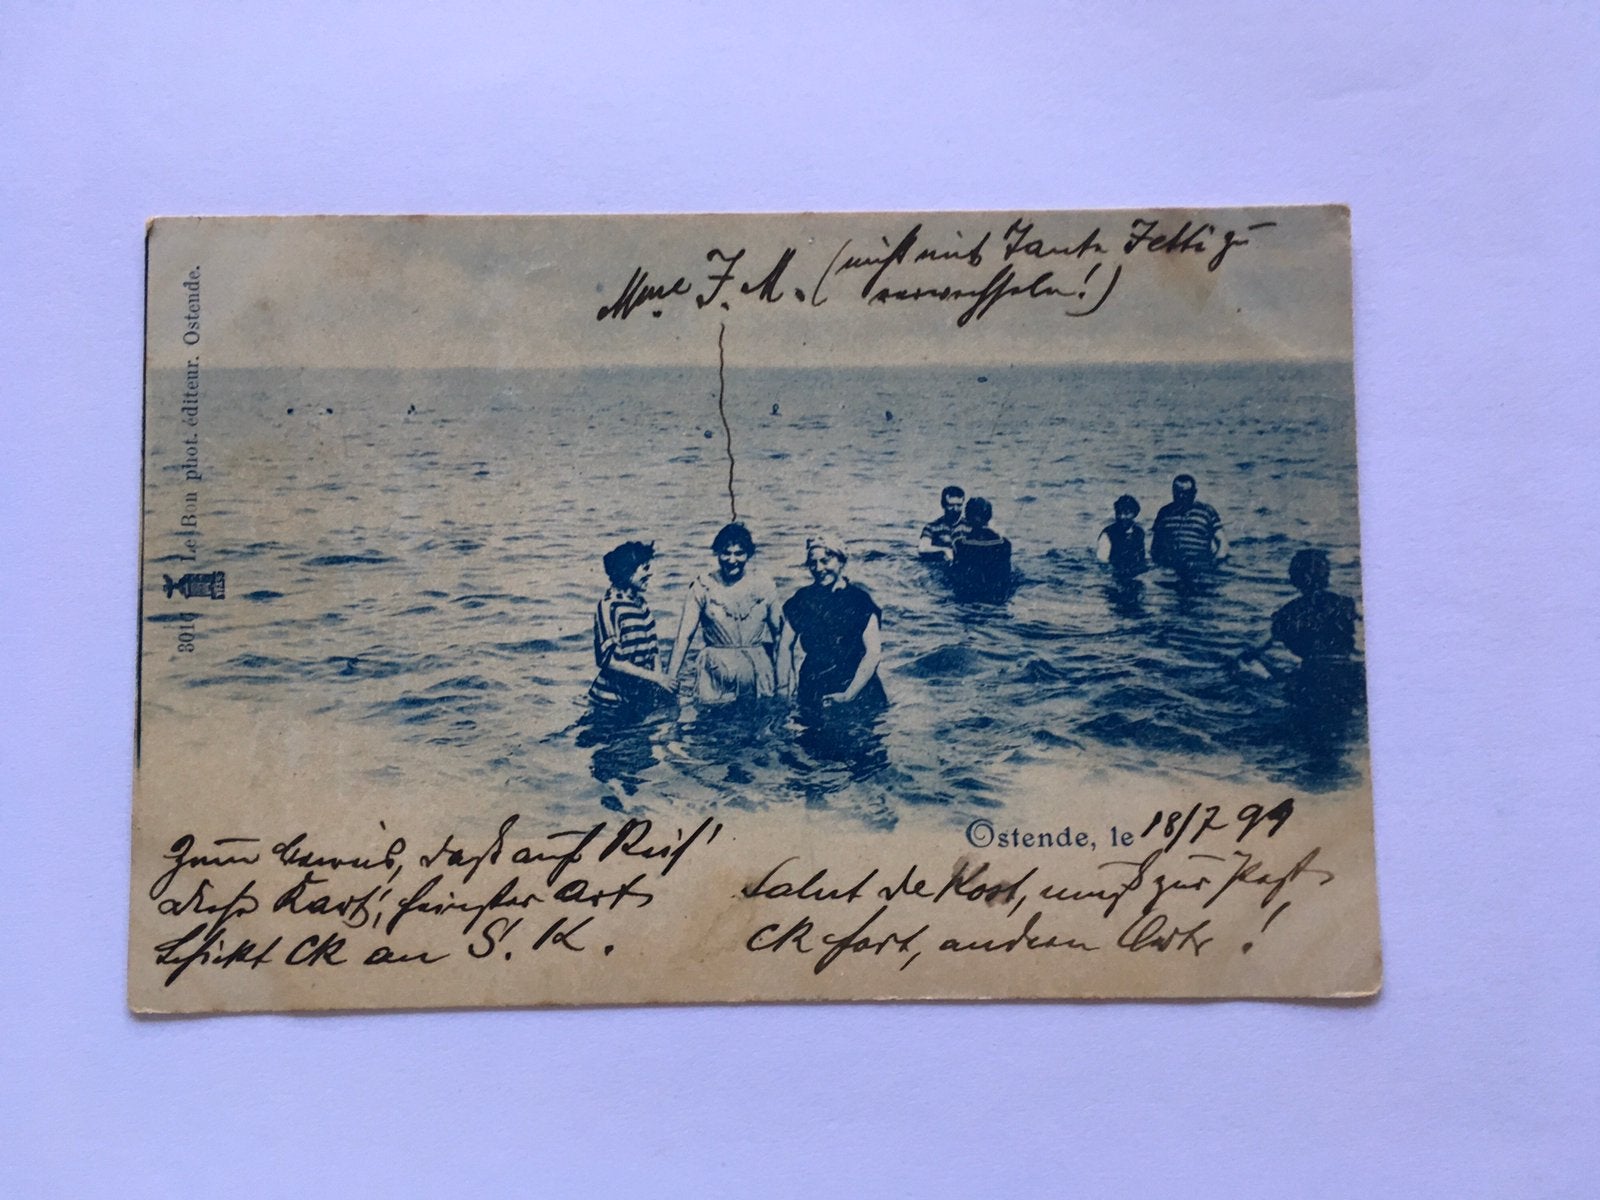 Mme J. M. (nicht mit Tante Jetti zu
verwechseln!)
Le Bon phot. éditeur. Ostende.
Ostende, le 18/7 99
Zum Beweis, daß auf Reis'
diese Kart', feinster Art
schickt CK an S. K.
Salut de Kost, muß zur Post
CK fort, andern Orts!